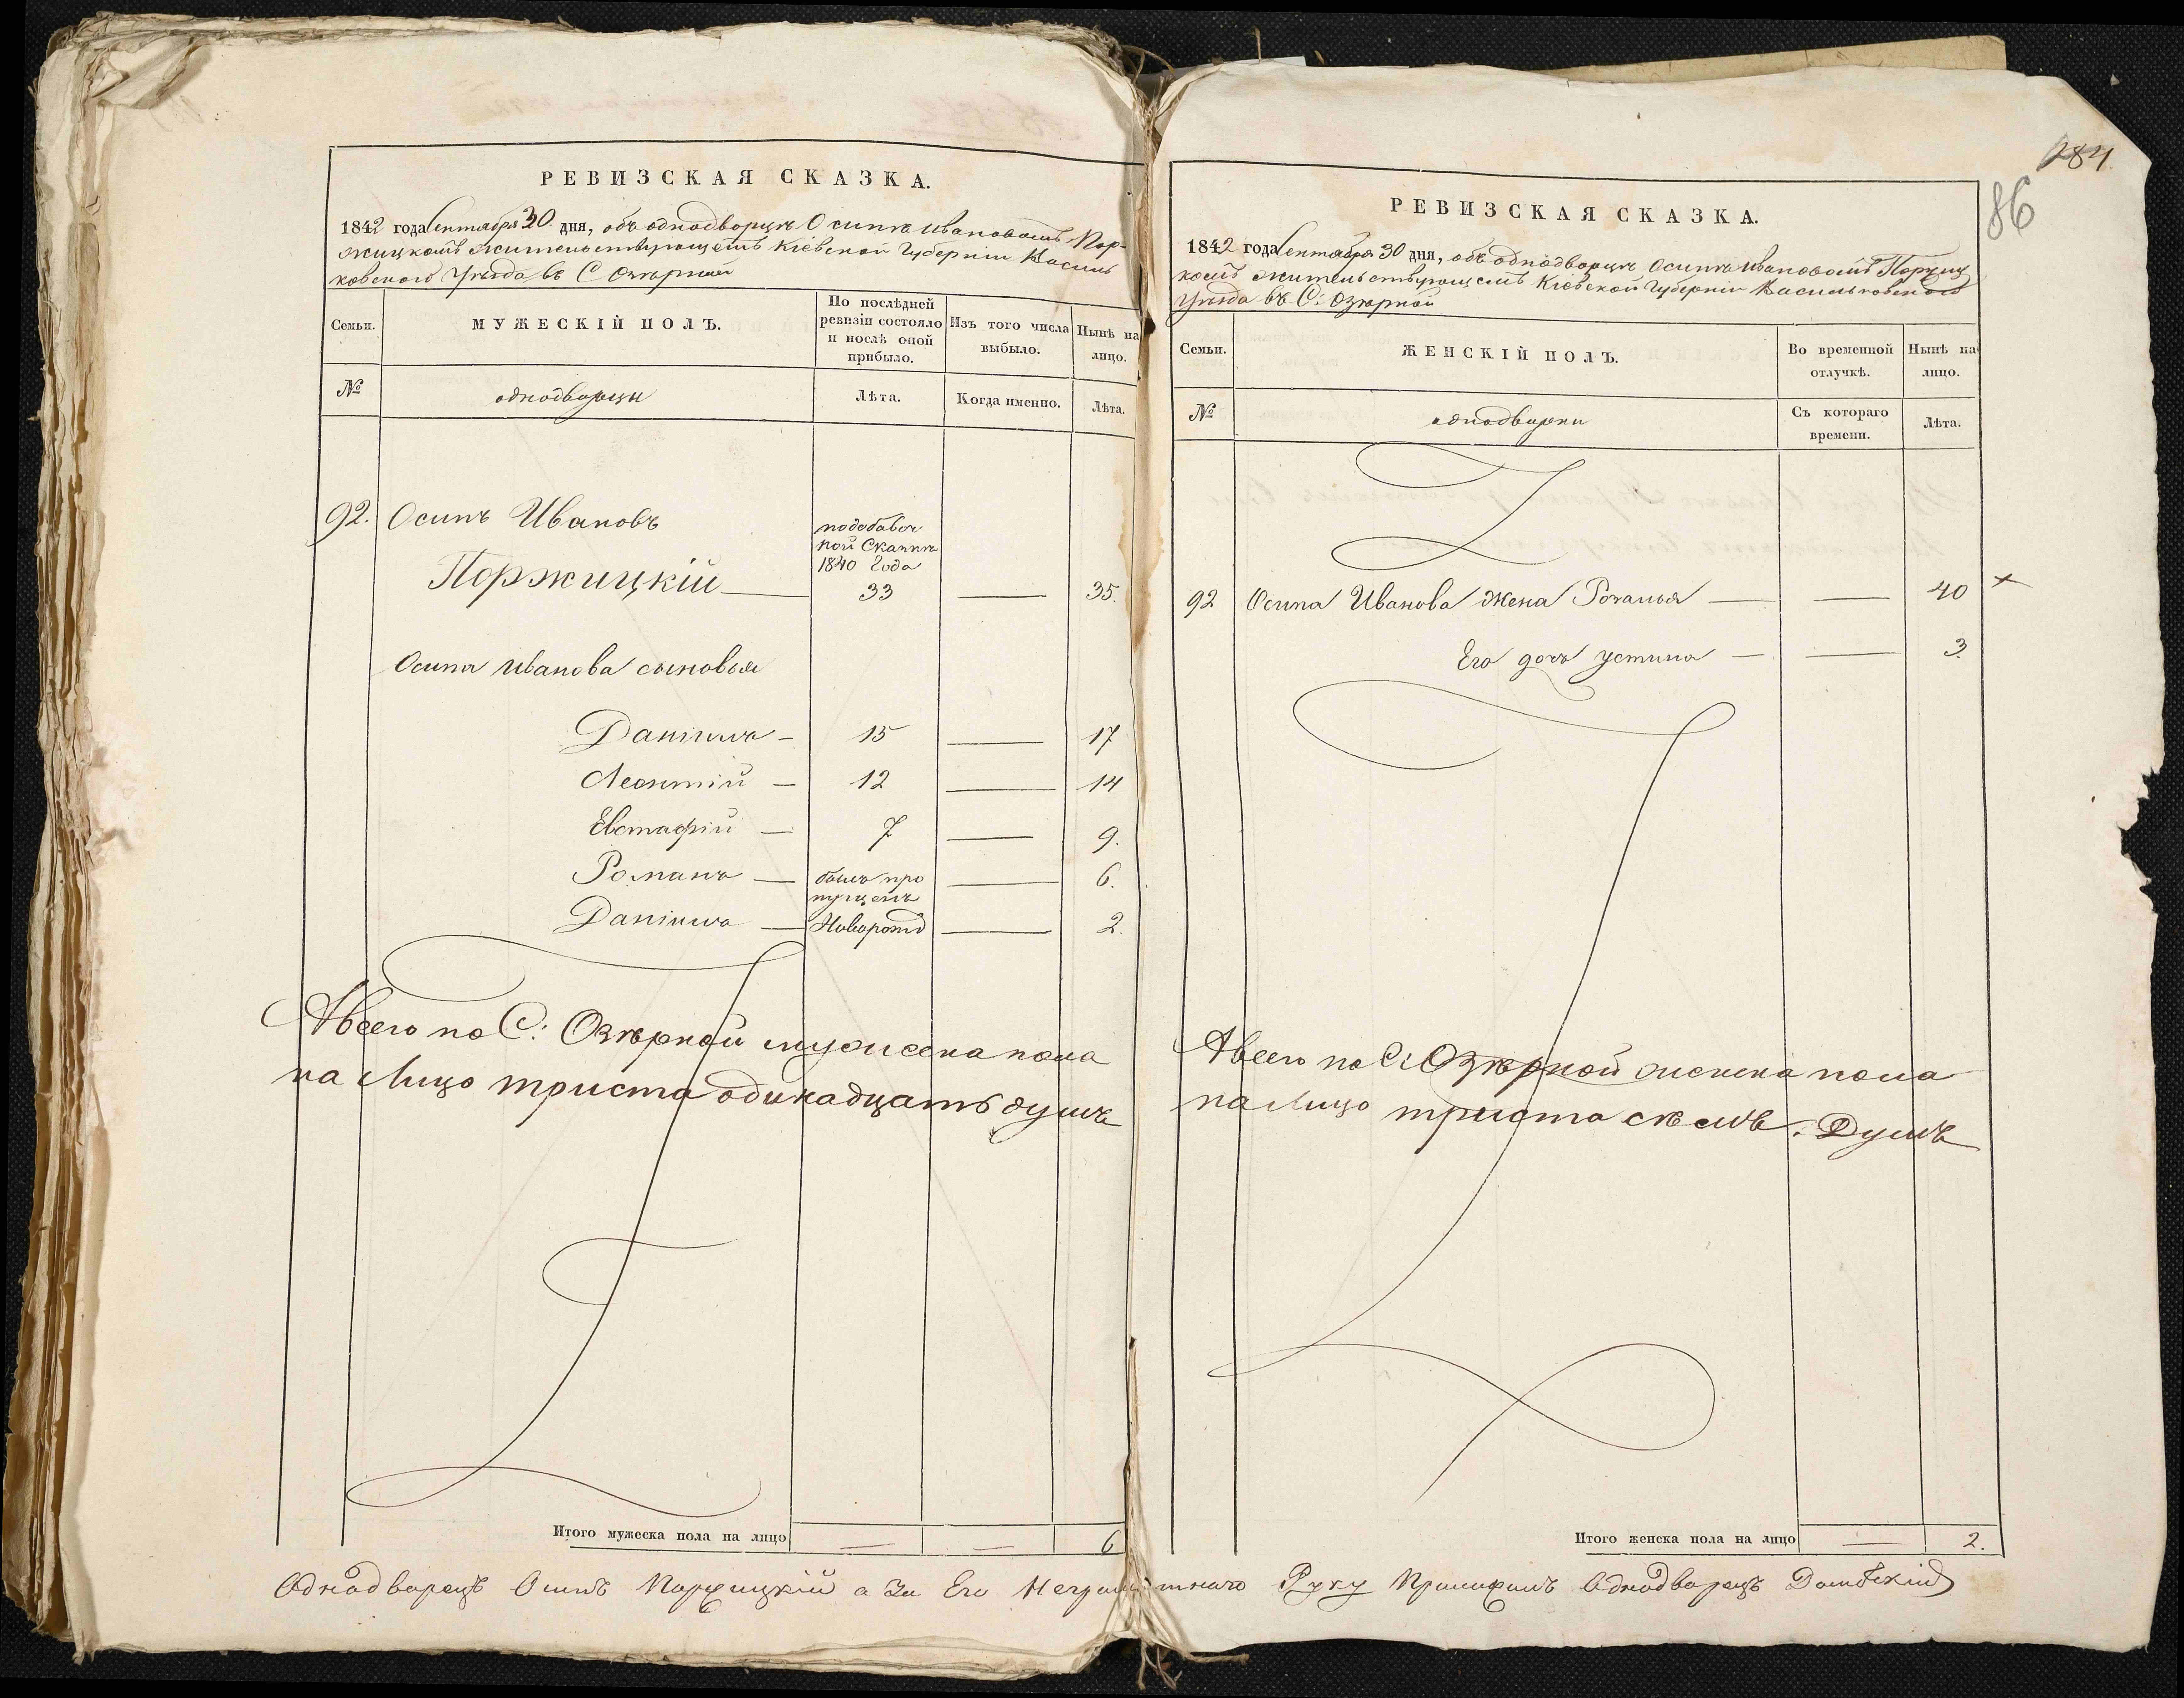 РЕВИЗСКАЯ СКАЗКА.
1842 года Сентября 30 дня, объ однодворцѣ Осипѣ Ивановомъ Пор-
жицкомъ жительствующемъ Кіевской Губерніи Василь
ковского Уѣзда въ С Озѣрной
Семьи.
МУЖЕСКІЙ ПОЛЪ.
По послѣдней
ревизіи состояло
и послѣ оной
прибыло.
Изъ того числа
выбыло.
Нынѣ на
лицо.
№
однодворцы
Лѣта.
Когда именно.
Лѣта.
92. Осипъ Ивановъ
Поржицкій
подобавоч
ной Сказкѣ
1840 Года
33 35.
Осипа Иванова сыновья
Даніилъ 15 17
Леонтій 12 14
Евстафій 7 9.
Романъ былъ про
пущенъ 6.
Даніилъ Новорожд 2.
А всего по С: Озѣрной мужеска пола
на Лицо триста одинадцать душъ
Итого мужеска пола на лицо — — 6
284.
86
РЕВИЗСКАЯ СКАЗКА.
1842 года Сентября 30 дня, объ однодворцѣ Осипѣ Ивановомъ Поржиц
комъ жительствующемъ Кіевской Губерніи Васильковского
Уѣзда въ С: Озѣрной
Семьи.
ЖЕНСКІЙ ПОЛЪ.
Во временной
отлучкѣ.
Нынѣ на
лицо.
№
однодворки
Съ котораго
времени.
Лѣта.
92 Осипа Иванова жена 40
Его дочь устина 3.
А всего по С: Озѣрной женска пола
на Лицо триста сѣмь. Душъ
Итого женска пола на лицо — 2.
Однодворецъ Осипъ Поржицкій а За Его Неграмотнаго Руку Приложилъ Однодворецъ